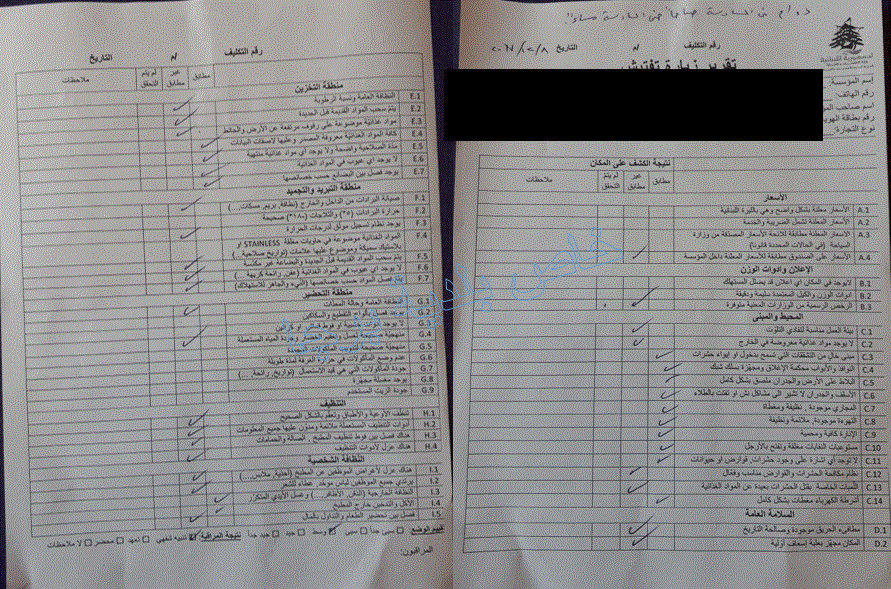 دوام من السادسة صباحاً حتى السادسة مساءً
الجمهورية اللبنانية
رقم التكليف
التاريخ
تقرير زيارة تفتيش
إسم المؤسسة:
رقم الهاتف
اسم صاحب
رقم بطاقة الهوية
نوع التجارة:
نتيجة الكشف على المكان
مطابق
غير مطابق
لم يتم التحقق
ملاحظات
الأسعار
A.1 الأسعار معلنة بشكل واضح وهي بالليرة اللبنانية
A.2 الأسعار المعلنة تشمل الضريبة والخدمة
A.3 الأسعار المعلنة مطابقة للائحة الأسعار المصدقة من وزارة السياحة (في الحالات المحددة قانونا)
A.4 الأسعار على الصندوق مطابقة للأسعار المعلنة داخل المؤسسة
الإعلان وادوات الوزن
B.1 لايوجد في المكان اي اعلان قد يضلل المستهلك
B.2 ادوات الوزن والكيل المعتمدة سليمة ودقيقة
B.3 الرخص الرسمية من الوزارات المعنية متوفرة
المحيط والمبنى
C.1 بيئة العمل مناسبة لتفادي التلوث
C.2 لا يوجد مواد غذائية معروضة في الخارج
C.3 مبنى خال من التشققات التي تسمح بدخول او ايواء حشرات
C.4 النوافذ والأبواب محكمة الإغلاق ومجهزة بسلك شبك
C.5 البلاط على الأرض والجدران ملصق بشكل كامل
C.6 الأسقف والجدران لا تشير الى مشاكل نش او تفتت بالطلاء
C.7 المجاري موجودة , نظيفة ومغطاة
C.8 التهوءة موجودة, ملائمة ونظيفة
C.9 الإنارة كافية ومحمية
C.10 مستوعبات النفايات مغلقة وتفتح بالأرجل
C.11 لا توجد أي اشارة على وجود حشرات, قوارض او حيوانات
C.12 نظام مكافحة الحشرات والقوارض مناسب وفعال
C.13 المبيات الخاصة بقتل الحشرات بعيدة عن المواد الغذائية
C.14 أشرطة الكهرباء مغطات بشكل كامل
السلامة العامة
D.1 مطافىء الحريق موجودة وصالحة التاريخ
D.2 المكان مجهز بعلبة إسعاف أولية
رقم التكليف
التاريخ
مطابق
غير مطابق
لم يتم التحقق
ملاحظات
منطقة التخزين
E.1 النظافة العامة ونسبة الرطوبة
E.2 يتم سحب المواد القديمة قبل الجديدة
E.3 مواد غذائية موضوعة على رفوف مرتفعة عن الأرض والحائط
E.4 كافة المواد الغذائية معروفة المصدر وعليها لاصقات البيانات
E.5 مدة الصلاحية واضحة ولا يوجد أي مواد غذائية منتهية
E.6 لا يوجد اي عيوب في المواد الغذائية
E.7 يوجد فصل بين البضائع حسب خصائصها
منطقة التبريد والتجميد
F.1 صيانة البرادات من الداخل والخارج (نظافة, بريم, مسكات,...)
F.2 حرارة البرادات (٥°) والثلاجات (-١٨°) صحيحة
F.3 يوجد نظام تسجيل موثق لدرجات الحرارة
F.4 المواد الغذائية موضوعة في حاويات مغلفة STAINLESS او بلاستيك سميكة وموضوع عليها علامات (تواريخ صلاحية ..)
F.5 يتم سحب المواد القديمة قبل الجديدة والبضاعة غير مكدسة
F.6 لا يوجد اي عيوب في المواد الغذائية (عفن, رائحة كريهة ...)
F.7 يتم فصل المواد حسب خصائصها (النيء والجاهز للاستهلاك)
منطقة التحضير
G.1 النظافة العامة وحالة المعدات
G.2 يوجد فصل بألواح التقطيع والسكاكين
G.3 لا يوجد أدوات خشبية او فوط قماش او كراتين
G.4 منهجية صحيحة لغسل وتعقيم الخضار وجودة المياه المستعملة
G.5 منهجية صحيحة لتذويب المأكولات المجمدة
G.6 عدم وضع المأكولات في حرارة الغرفة لمدة طويلة
G.7 جودة المأكولات التي هي قيد الاستعمال (تواريخ, رائحة, ...)
G.8 يوجد مغسلة مجهزة
G.9 جودة الزيت المستخدم
التنظيف
H.1 تنظف الأوعية والأطباق وتعقم بالشكل الصحيح
H.2 أدوات التنظيف المستعملة ملائمة ومدون عليها جميع المعلومات
H.3 هناك فصل بين فوط تنظيف المطبخ , الصالة والحمامات
H.4 هناك عزل لأدوات التنظيف
النظافة الشخصية
I.1 هناك عزل لأغراض الموظفين عن المطبخ (أحذية, ملابس,...)
I.2 يرتدي جميع الموظفين لباس موحد, غطاء للشعر
I.3 النظافة الخارجية (الذقن, الأظافر ...) وغسل الأيدي المتكرر
I.4 الأكل والتدخين خارج المطبخ
I.5 فصل بين تحضير الطعام والتداول بالمال
تقييم الوضع: سيىء جداً سيىء وسط جيد جيد جداً نتيجة المراقبة: تنبيه شفهي تعهد محضر لا ملاحظات
المراقبون: